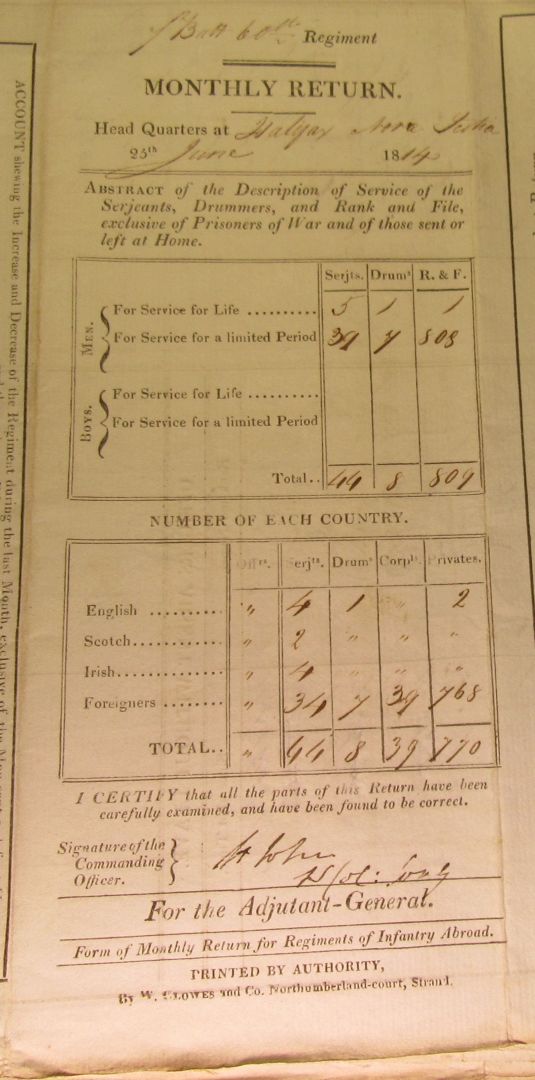 Batt 60th Regiment
MONTHLY RETURN.
Head Quarters at Halifax Nova Scotia
25th June 1814
ABSTRACT of the Description of Service of the
Serjeants, Drummers, and Rank and File,
exclusive of Prisoners of War and of those sent or
left at Home.
Serjts. Drums R. & F.
MEN.
For Service for Life .......... 5 1 1
For Service for a limited Period 39 7 808
BOYS.
For Service for Life ..........
For Service for a limited Period
Total.. 44 8 809
NUMBER OF EACH COUNTRY.
Offrs. Serjts. Drums Corpls. Privates.
English .......... " 4 1 " 2
Scotch............ " 2 " " "
Irish............. " 4 " " "
Foreigners ........ " 34 7 39 768
TOTAL.. " 44 8 39 770
I CERTIFY that all the parts of this Return have been
carefully examined, and have been found to be correct.
Signature of the
Commanding
Officer.
For the Adjutant-General.
Form of Monthly Return for Regiments of Infantry Abroad.
PRINTED BY AUTHORITY,
By W. CLOWES and Co. Northumberland-court, Strand.
ACCOUNT shewing the Increase and Decrease of the Regiment during the last Month, exclusive of the Men